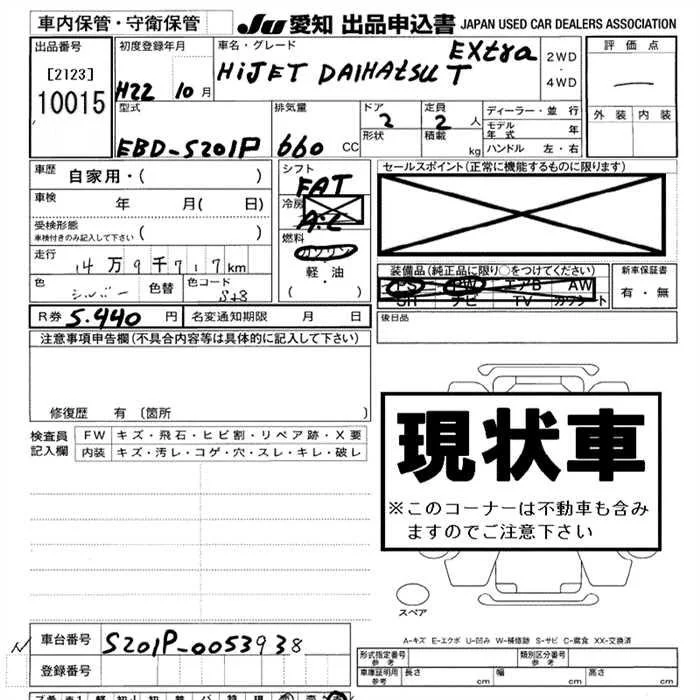 車内保管・守衛保管
JU 愛知 出品申込書 JAPAN USED CAR DEALERS ASSOCIATION
出品番号
[2123]
10015
初度登録年月
H22 10月
車名・グレード
HiJET DAIHAtsU EXtra T
2WD
・
4WD
評価点
外装 内装
型式
EBD-S201P
排気量
660 CC
ドア
2
形状
定員
2 人
積載 kg
ディーラー・並行
モデル年式 年
ハンドル 左・右
車歴 自家用・( )
車検 年 月( 日)
受検形態
車検付きのみ記入して下さい ( )
走行 14万9千717km
色 シルバー 色替 色コード S28
シフト
FAT
冷房
A.C
燃料
ガソリン
軽・油
( )
セールスポイント(正常に機能するものに限ります)
装備品(純正品に限り○をつけてください)
PS PW エアB AW
SR ナビ TV カワシート
新車保証書
有・無
R券 5.440 円 名変通知期限 月 日
後日品
注意事項申告欄(不具合内容等は具体的に記入して下さい)
修復歴 有〔箇所 〕
検査員
記入欄
FW キズ・飛石・ヒビ割・リペア跡・X要
内装 キズ・汚レ・コゲ・穴・スレ・キレ・破レ
現状車
※このコーナーは不動車も含み
ますのでご注意下さい
スペア
A-キズ E-エクボ U-凹み W-補修跡 S-サビ C-腐食 XX-交換済
N 車台番号 S201P-0053938
登録番号
形式指定番号
参考
類別区分番号
参考
車庫証明用
参考
長さ cm 幅 cm 高さ cm